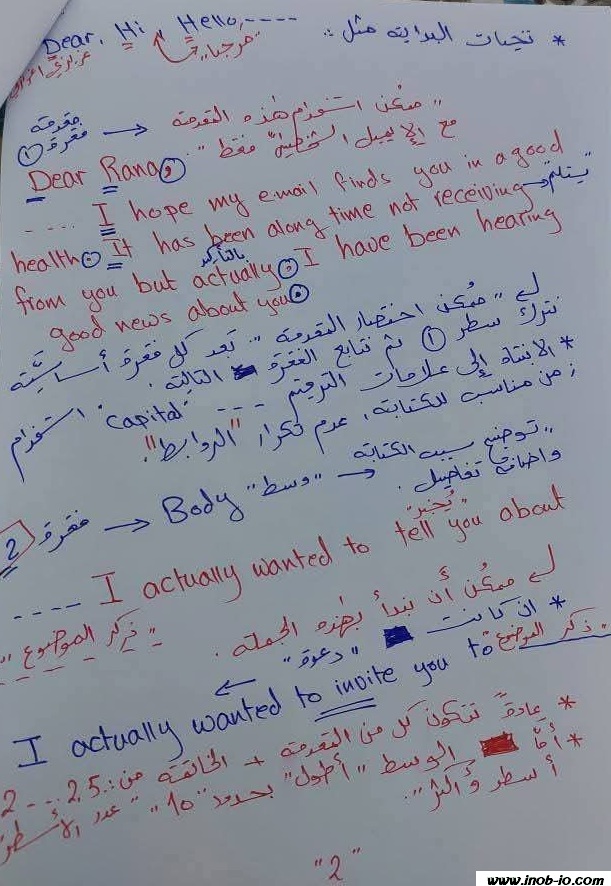 * تحيات البداية مثل :. Dear, Hi, Hello, ----
"مرحبا"
"ممكن استخدام هذه المقدمة ← مقدمة
مع الإيميل الشخصية" فقط". فقرة ①
Dear Rana,
.... I hope my email finds you in a good
health. It has been along time not receiving "يستلم"
from you but actually, I have been hearing
بالتأكيد
good news about you.
"ممكن اختصار المقدمة" بعد كل فقرة أساسية
نترك سطر ① ثم نتابع الفقرة التالية.
* الانتباه إلى علامات الترقيم --- "Capital" استخدام
زمن مناسب للكتابة، عدم تكرار "الروابط".
"توضيح سبب الكتابة
واضافة تفاصيل.
فقرة 2 → Body "وسط" →
"يُخبر"
---- I actually wanted to tell you about
ممكن أن نبدأ بهذه الجملة. "ذكر الموضوع"
* ان كانت "دعوة"
I actually wanted to invite you to ذكر الموضوع
* عادةً تتكون كل من المقدمة + الخاتمة من :. 2,5 --- 2
* أمَّا الوسط "أطول" بحدود "10" "عدد الأسطر
أسطر وأكثر".
"2"
www.inob-io.com